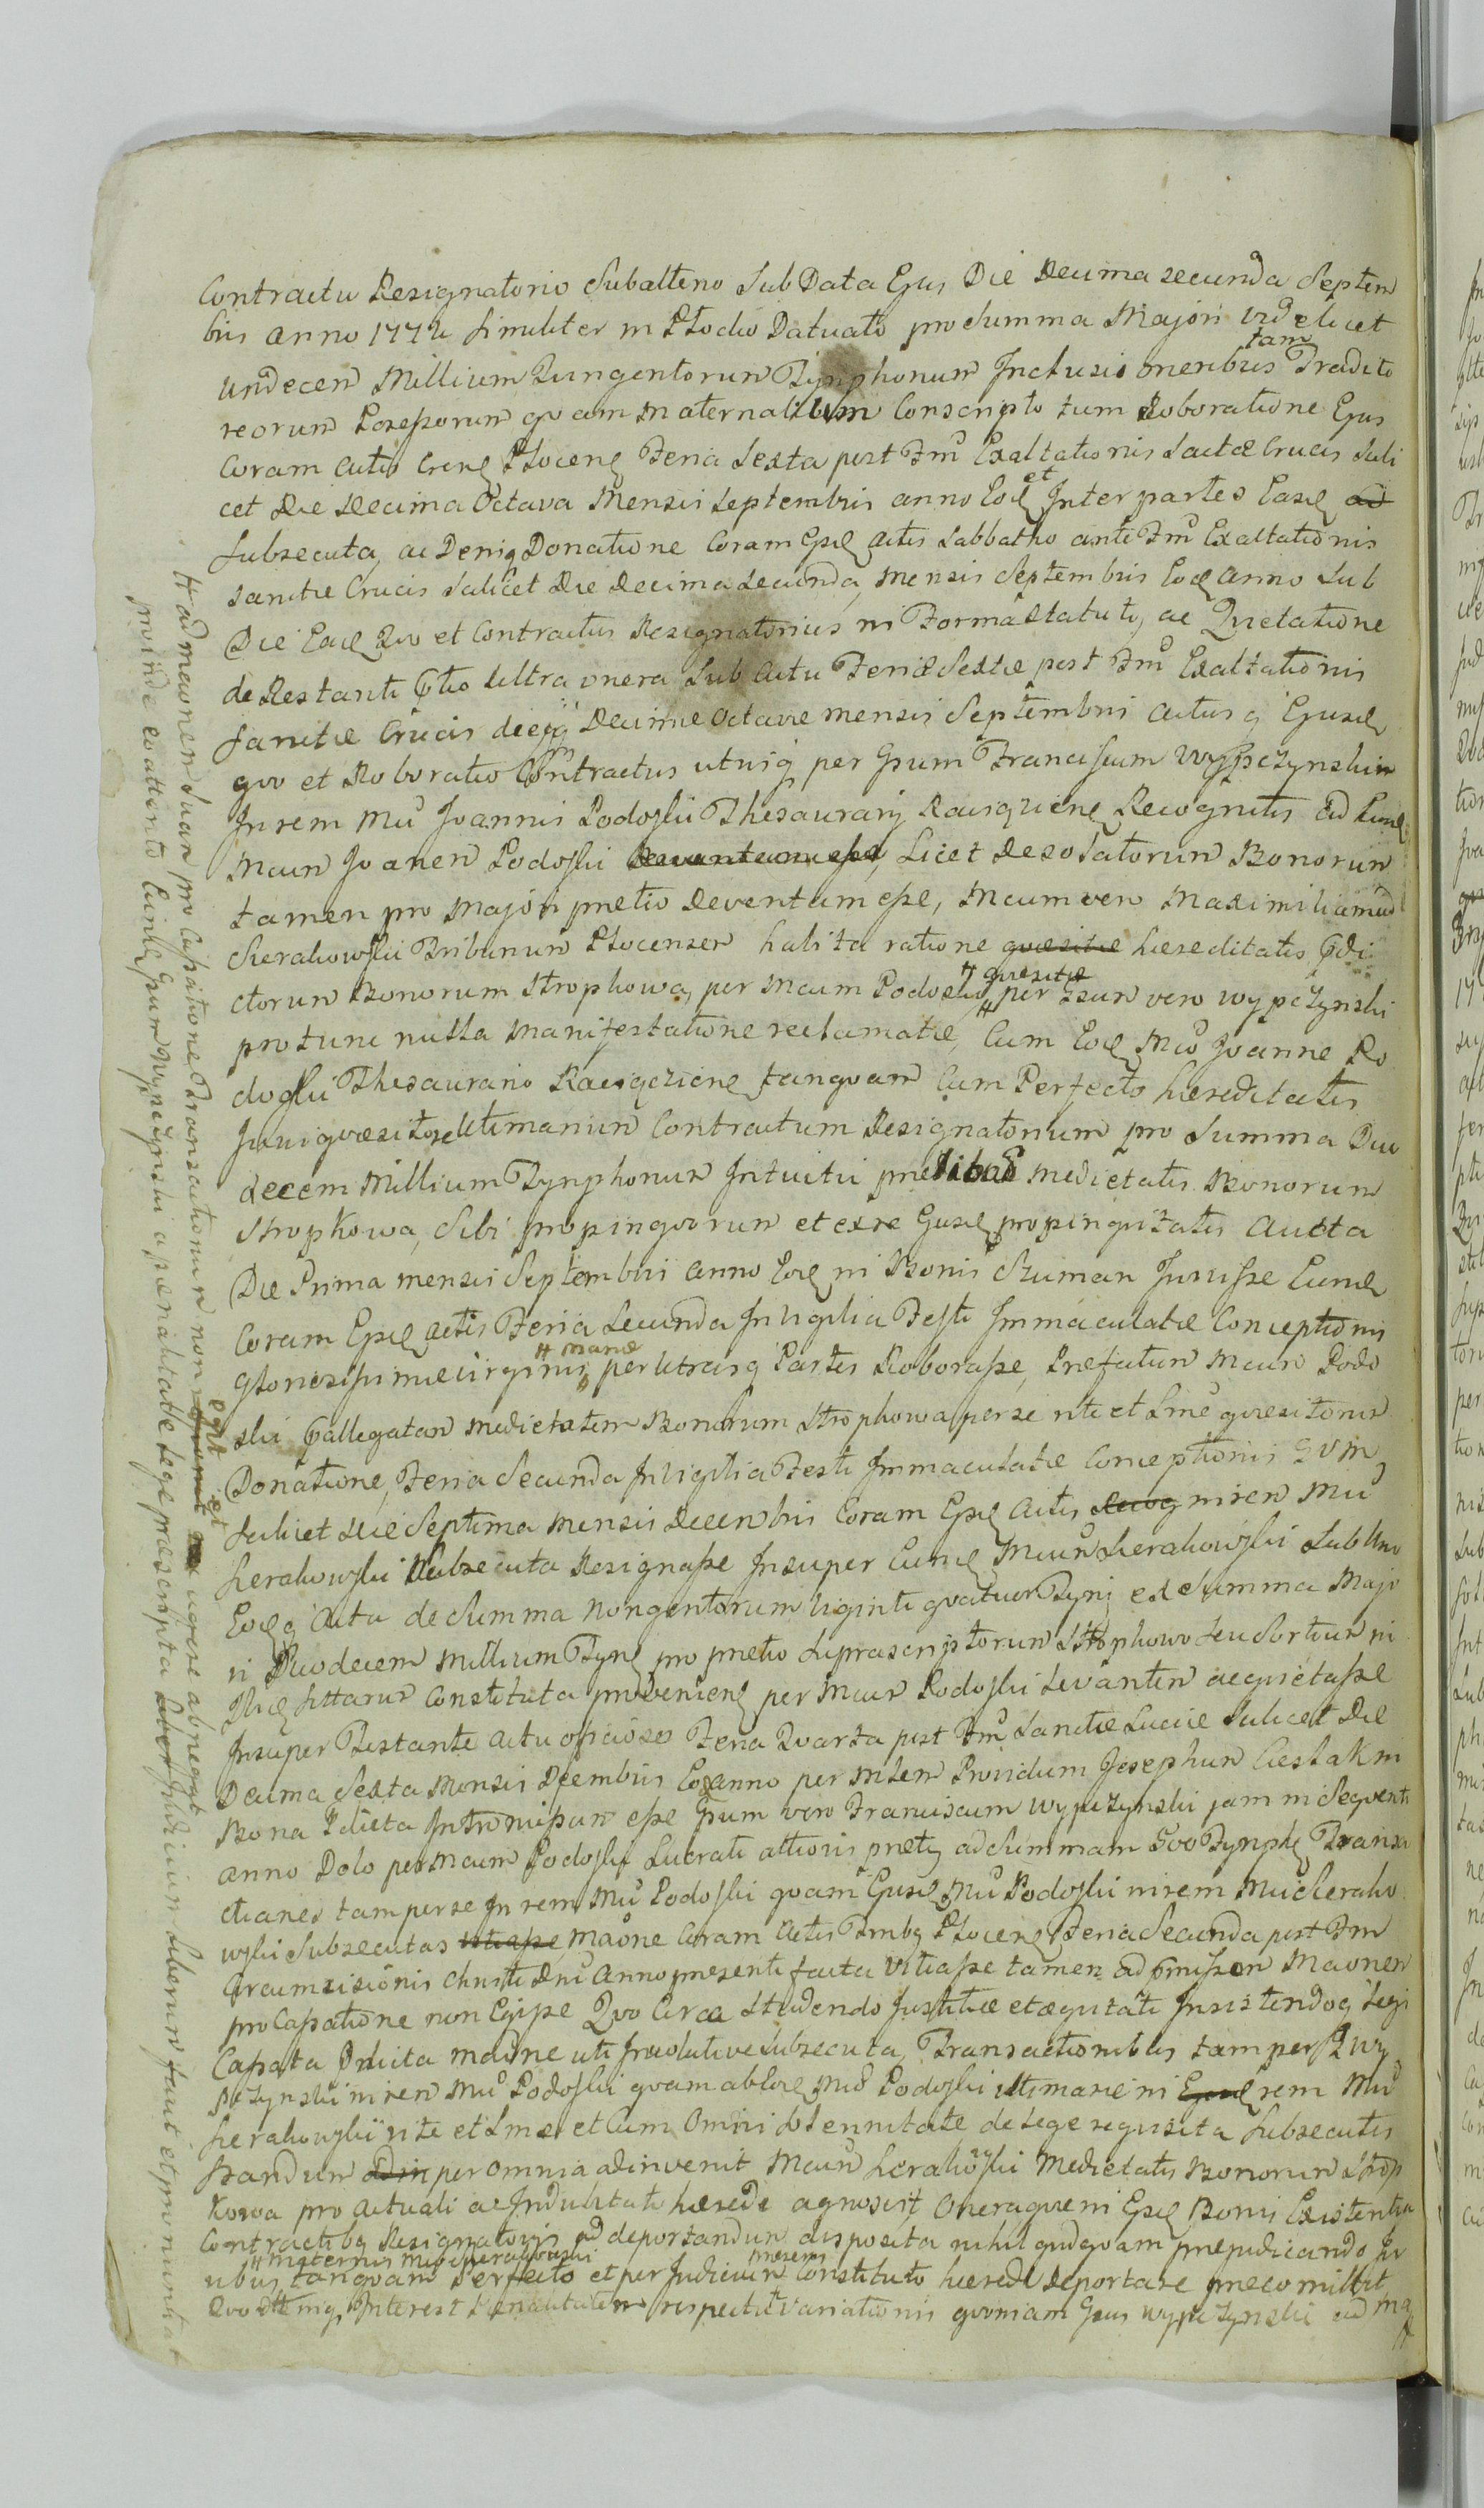 Contractu Resignatorio Subalterno Sub Data Ejus Die Decima secunda Septem
bris anno 1772 Similiter in Plocko Datuato pro Summa Majori videlicet
undecem Millium Quingentorum Tynphonum Inclusis oneribus tam Tradito
reorum Possessorum quam maternalium Conscripto tum Roboratione Ejus
Coram actis Cren Plocen Feria Sexta post Fm Exaltationis Sactæ Crucis Sali
cet Die Decima Octava Mensis Septembris anno Eod et Inter partes Easd ad
Subsecuta, ac Deniq Donatione Coram Ejsd actis Sabbatho ante Fm Exaltationis
sanctæ Crucis Salicet Die Decima Secunda, mensis Septembris Eod anno Sub
Die Ead Quo et Contractus Resignatorius in Forma Statuti, ac Quietatione
de Restanti Ptio Ultra onera Sub actu Feriæ Sextæ post Fm Exaltationis
Sanctæ Crucis dieqq Decimæ Octavæ mensis Septembris actusq Ejusd
quo et Roboratio Contractus utriusq per Gsum Franciscum Wypczynskim
In rem Mci Joannis Podoski Thesaurarij Raciązien Recognitis Ad Eund
Mcum Joanen Podoski Devantum esse, Licet Desolatorum Bonorum
tamen pro majori pretio Deventum esse, Mcum vero Maximilianum
Sierakowski Tribunum Plocensem habita ratione quæsitæ hæreditatis pdi
ctorum Bonorum Stropkowa, per Mcum Podoski # quæsitæ per Gsum vero Wypczynski
pro tunc nulla Manifestatione reclamatæ, Cum Eod Mco Joanne Po
doski Thesaurario Raciązien tanquam Cum Perfecto hæreditatis
Jurisquæsitore Ultimarium Contractum Resignatorium pro Summa Duo
decem Millium Tynphonum Intuitu prælibatæ medietatis Bonorum
Stropkowa, Sibi propinquorum et ex re Ejusd propinquitatis aucta
Die Prima mensis Septembris anno Eod in Bonis Szuman Inivisse Eund
Coram Ejsd actis Feria Secunda In Vigilia Festi Immaculatæ Conceptionis
Gloriosissimæ Virginis # Mariæ per Utrasq Partes Roborasse, Præfatum Mcum Podo
ski Pallegatam medietatem Bonorum Stropkowa per se rite et Lme quæsitorum
Donatione, Feria Secunda In Vigilia Festi Immaculatæ Conceptionis GVM
Salicet Die Septima mensis Decembris Coram Ejsd Actis Recog in rem Mci
Sierakowski Subsecuta Resignasse Insuper Eund Mcum Sierakowski Sub Uno
Eodq Actu de Summa Nongentorum Viginti quatuor Tynf ex Summa Majo
ri Duodecem Millium Tynf pro pretio Suprascriptorum Stropkowo Seu Sortium in
Constituta provenien per Mcum Podoski Levantem acquietasse
Insuper Testante actu officioso Feria Quarta post Fm Sanctæ Luciæ Salicet Die
Decima Sexta Mensis Decembris Eo anno per Mlem Providum Josephum Cieslak in
Bona Pdicta Intromissum esse Gsum vero Franciscum Wypczynski jam in Sequenti
anno Dolo per Mcum Podoski Lucrati altioris pretij ad Summam 500 Tynph Transa
ctiones tam per se In rem Mci Podoski quam Ejusd Mci Podoski in rem Mci Sierako
wski Subsecutas vitiasse Maone Coram Actis Tmbq Plocen Feria Secunda post Fm
Circumcisionis Christi Dni Anno præsenti facta Vitiasse tamen ad pmissam Maonem
pro Cassatione non Egisse Quo Circa Studendo Justitiæ et æquitati Insistendoq Legi
Cassata Pdicta maone uti frivolative Subsecuta, Transactionibus tam per G Wy
pczynski in rem Mci Podoski quam ab Eod Mco Podoski ultimarie in Ejusd rem Mci
Sierakowski rite et Lme et Cum Omni Solennitate de Lege requisita Subsecutis
standum adin per omnia adinvenit Mcum Sierakowski Medietatis Bonorum Strop
kowa pro actuali ac Indubitato hærede agnoscit, Oneraque in Ejsd Bonis Existentia
Contractibq Resignatorijs ad deportandum disposita nihil quidquam præjudicando Ju
ribus # maternis Mci Sierakowski tanquam Perfecto et per Judicium præsens Constituto hæredi Deportare præcomittit
Interest Pœnalitatem respectu Variationis quoniam Gsus Wypczynski ad ma
#
# ad maonem Suam pro Cassatione Transactionum non egit et agere abnegat
proinde eo attento Eund Gsum Wypczynski a pœnalitate Lege præscripta Liberi Judicium Liberum facit et pronuntiat